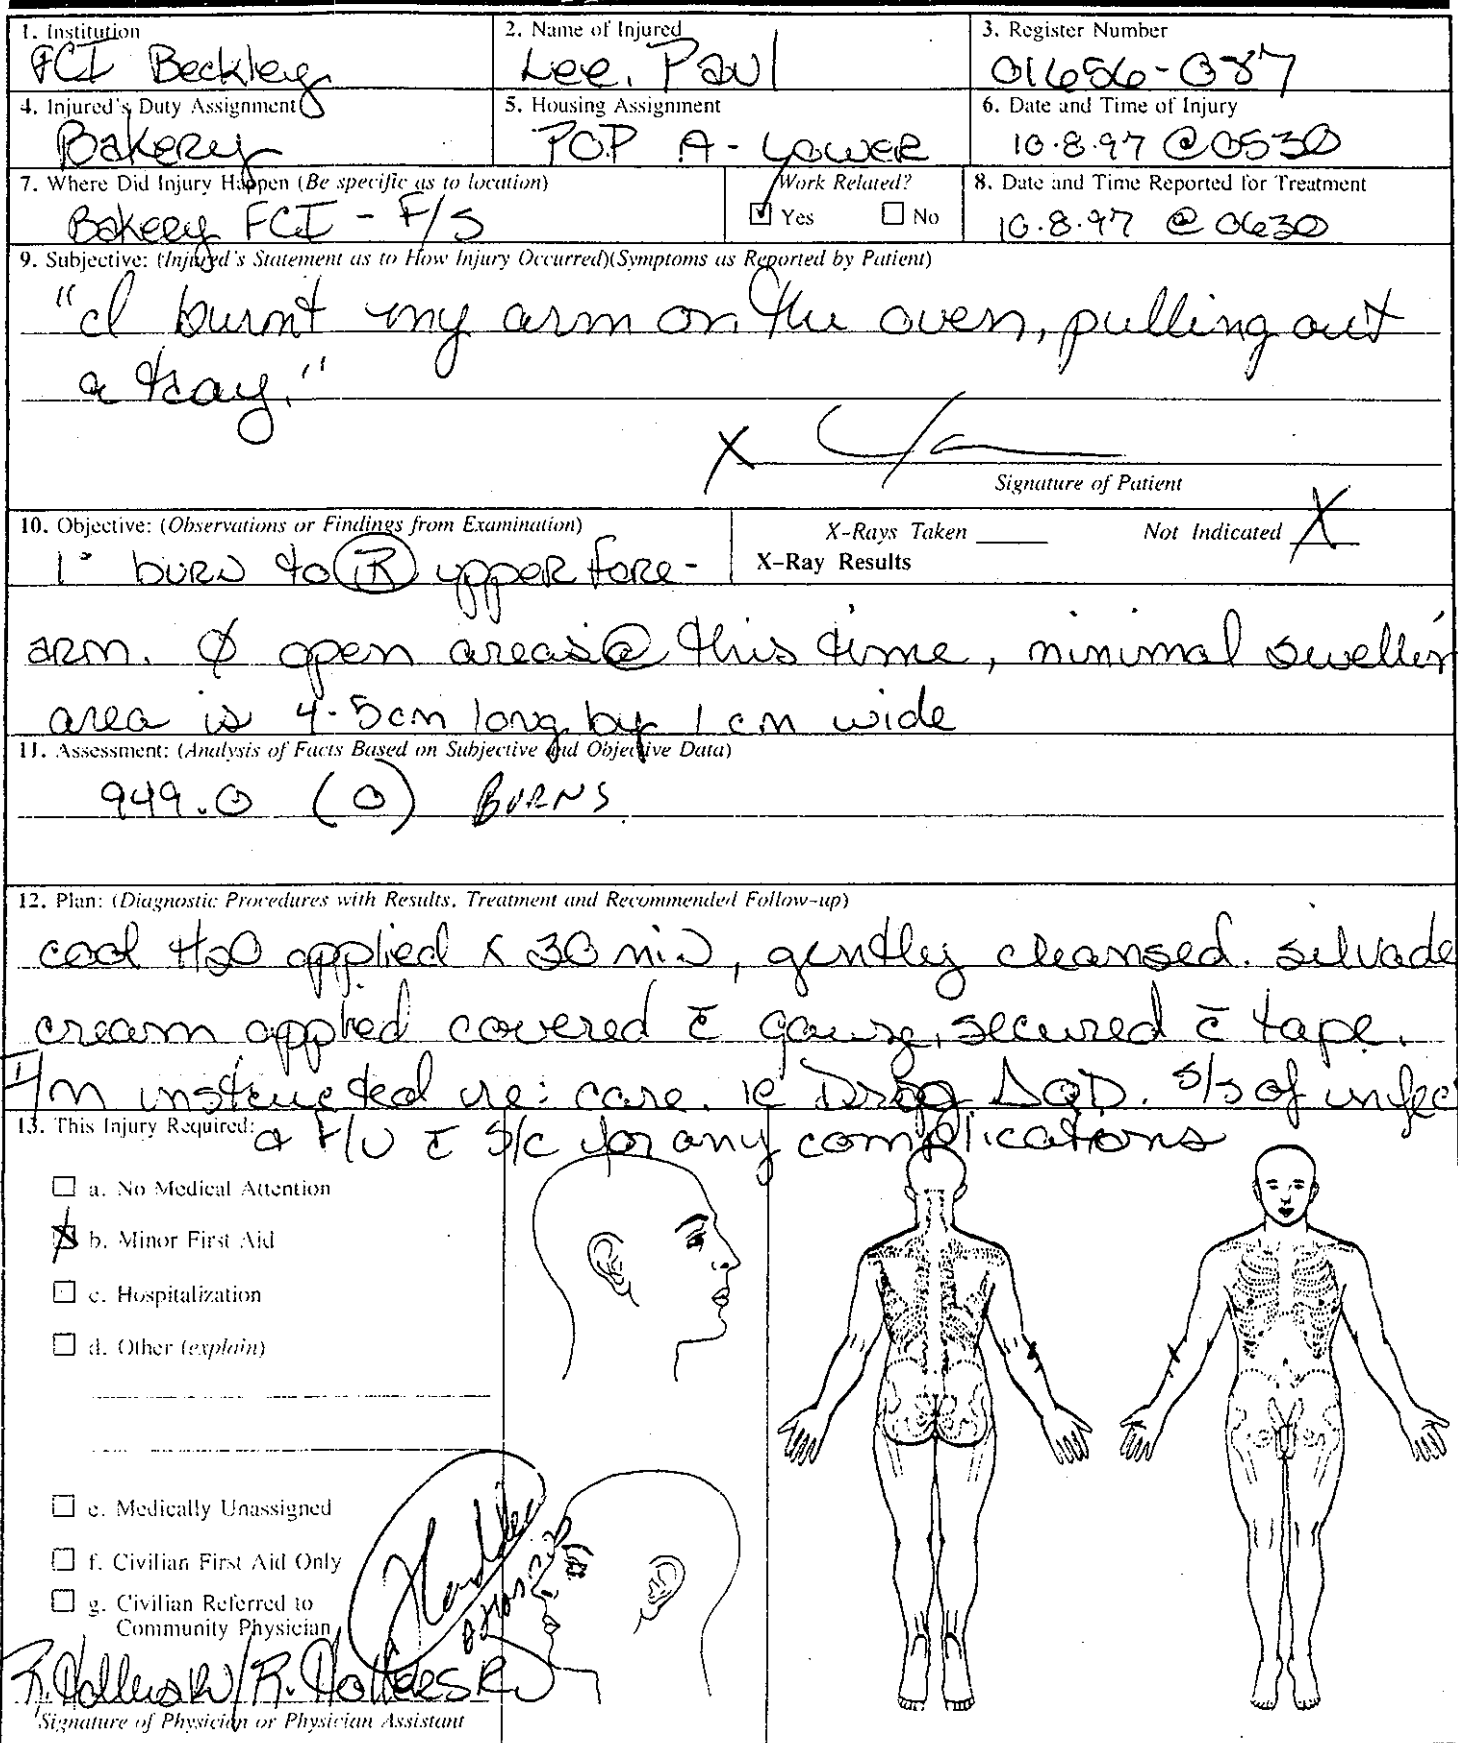 1. Institution
FCI Beckley
2. Name of Injured
Lee, Paul
3. Register Number
01656-087
4. Injured's Duty Assignment
Bakery
5. Housing Assignment
POP A - Lower
6. Date and Time of Injury
10.8.97 @ 0530
7. Where Did Injury Happen (Be specific as to location)
Bakery FCI - F/S
Work Related?
Yes No
8. Date and Time Reported for Treatment
10.8.97 @ 0630
9. Subjective: (Injured's Statement as to How Injury Occurred)(Symptoms as Reported by Patient)
"I burnt my arm on the oven, pulling out
a tray."
X
Signature of Patient
10. Objective: (Observations or Findings from Examination)
X-Rays Taken Not Indicated X
X-Ray Results
1° burn to (R) upper fore-
arm. Ø open areas @ this time, minimal swellin
area is 4-5cm long by 1 cm wide
11. Assessment: (Analysis of Facts Based on Subjective and Objective Data)
949.0 (0) BURNS
12. Plan: (Diagnostic Procedures with Results, Treatment and Recommended Follow-up)
cool H2O applied x 30 min, gently cleansed. silvade
cream applied covered c̄ gauze, secured c̄ tape.
I/M instructed re: care. ie Drsg Δ QD. s/s of infec
13. This Injury Required:
& F/U c̄ S/C for any complications
a. No Medical Attention
b. Minor First Aid
c. Hospitalization
d. Other (explain)
e. Medically Unassigned
f. Civilian First Aid Only
g. Civilian Referred to
Community Physician
Signature of Physician or Physician Assistant